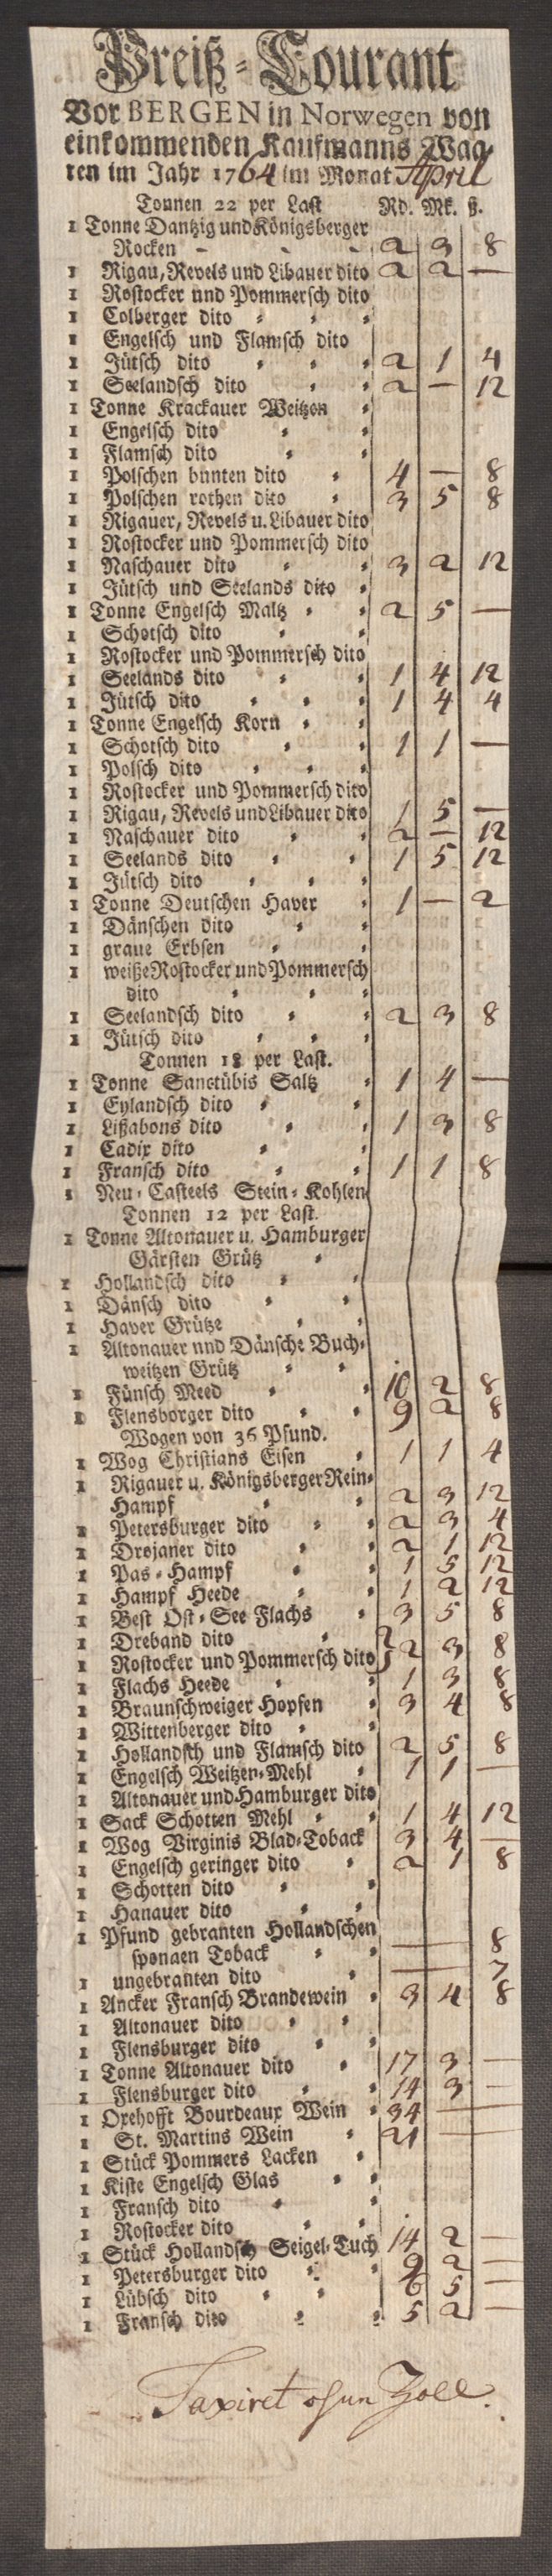 Preiß-Courant
Vor BERGEN in Norwegen von
einkommenden Kaufmanns Waa-
ren im Jahr 1764 im Monat April
Tonnen 22 per Last Rd. Mk. ß.
1 Tonne Dantzig und Königsberger
Rocken - - - 2 3 8
1 Rigau, Revels und Libauer dito 2 2 —
1 Rostocker und Pommersch dito
1 Colberger dito
1 Engelsch und Flamsch dito
1 Jütsch dito 2 1 4
1 Seelandsch dito 2 — 12
1 Tonne Krackauer Weitzen
1 Engelsch dito
1 Flamsch dito
1 Polschen bunten dito 4 — 8
1 Polschen rothen dito 3 5 8
1 Rigauer, Revels u. Libauer dito
1 Rostocker und Pommersch dito
1 Naschauer dito 3 2 12
1 Jütsch und Seelands dito
1 Tonne Engelsch Maltz 2 5 —
1 Schotsch dito
1 Rostocker und Pommersch dito
1 Seelands dito 1 4 12
1 Jütsch dito 1 4 4
1 Tonne Engelsch Korn
1 Schotsch dito 1 1 —
1 Polsch dito
1 Rostocker und Pommersch dito
1 Rigau, Revels und Libauer dito 1 5 —
1 Naschauer dito 2 — 12
1 Seelands dito 1 5 12
1 Jütsch dito
1 Tonne Deutschen Haver 1 — 2
1 Dänschen dito
1 graue Erbsen
1 weiße Rostocker und Pommersch
dito
1 Seelandsch dito 2 3 8
1 Jütsch dito
Tonnen 18 per Last.
1 Tonne Sanctübis Saltz 1 4 —
1 Eylandsch dito
1 Lißabons dito 1 3 8
1 Cadix dito
1 Fransch dito 1 1 8
1 Neu-Casteels Stein-Kohlen
Tonnen 12 per Last.
1 Tonne Altonauer u. Hamburger
Gärsten Grütz
1 Hollandsch dito
1 Dänsch dito
1 Haver Grütze
1 Altonauer und Dänsche Buch-
weitzen Grütz
1 Fünsch Meed 10 2 8
1 Flensborger dito 9 2 8
Wogen von 36 Pfund.
1 Wog Christians Eisen 1 1 4
1 Rigauer u. Königsberger Rein-
Hampf 2 3 12
1 Petersburger dito 2 3 4
1 Drojaner dito 2 1 12
1 Pas-Hampf 1 5 12
1 Hampf Heede 1 2 12
1 Best Ost-See Flachs 3 5 8
1 Dreband dito
1 Rostocker und Pommersch dito } 2 3 8
1 Flachs Heede 1 3 8
1 Braunschweiger Hopfen 3 4 8
1 Wittenberger dito
1 Hollandsch und Flamsch dito 2 5 8
1 Engelsch Weitzen-Mehl 1 1 —
1 Altonauer und Hamburger dito
1 Sack Schotten Mehl 1 4 12
1 Wog Virginis Blad-Toback 3 4 —
1 Engelsch geringer dito 2 1 8
1 Schotten dito
1 Hanauer dito
1 Pfund gebranten Hollandschen
sponnen Toback — — 8
1 ungebranten dito — — 7
1 Ancker Fransch Brandewein 3 4 8
1 Altonauer dito
1 Flensburger dito
1 Tonne Altonauer dito 17 3 —
1 Flensburger dito 14 3 —
1 Oxehofft Bourdeaux Wein 34 — —
1 St. Martins Wein 21 — —
1 Stück Pommers Lacken
1 Kiste Engelsch Glas
1 Fransch dito
1 Rostocker dito
1 Stück Hollandsch Seigel-Tuch 14 2 —
1 Petersburger dito 9 2 —
1 Lübsch dito 6 5 —
1 Fransch dito 5 2 —
Taxiret ohne Zoll.